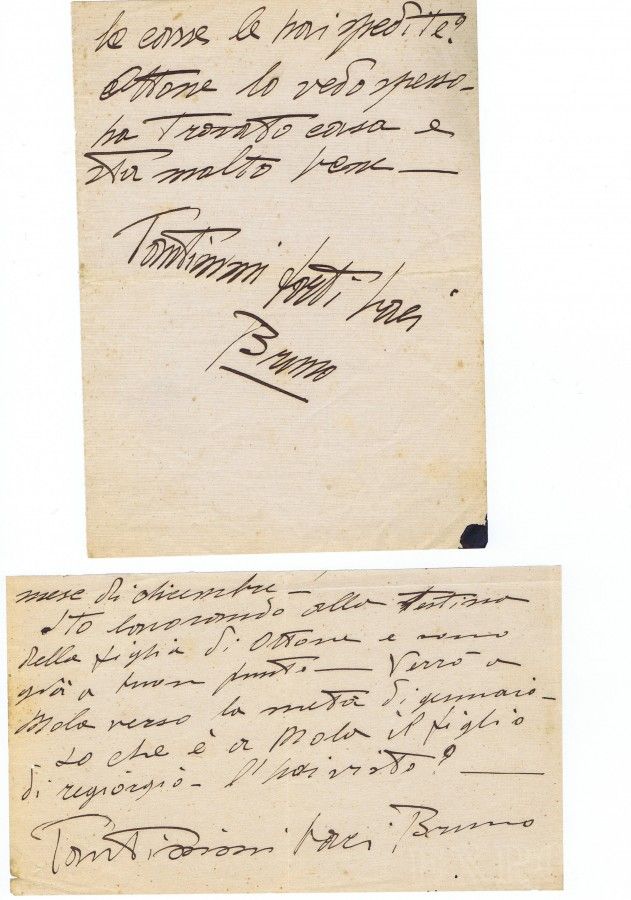 le casse le hai spedite?
Ottone lo vedo spesso -
ha trovato casa e
sta molto bene —
Tantissimi forti baci
Bruno
mese di dicembre -
Sto lavorando alla testina
della figlia di Ottone e sono
già a buon punto — Verrò a
Mola verso la metà di gennaio -
So che è a Mola il figlio
di - l'hai visto? —
Tantissimi baci Bruno